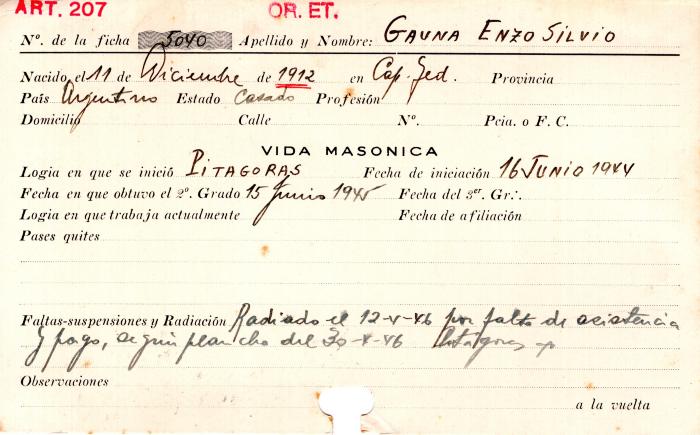 ART. 207 OR. ET.
Nº. de la ficha 5040 Apellido y Nombre: GAUNA ENZO SILVIO
Nacido el 11 de Diciembre de 1912 en Cap. Fed. Provincia
País Argentino Estado Casado Profesión
Domicilio Calle Nº. Pcia. o F. C.
VIDA MASONICA
Logia en que se inició PITAGORAS Fecha de iniciación 16 JUNIO 1944
Fecha en que obtuvo el 2º. Grado 15 Junio 1945 Fecha del 3er. Gr∴.
Logia en que trabaja actualmente Fecha de afiliación
Pases quites
Faltas-suspensiones y Radiación Radiado el 12-V-46 por falta de asistencia
y pago, según plancha del 30-V-46 Pitágoras
Observaciones
a la vuelta